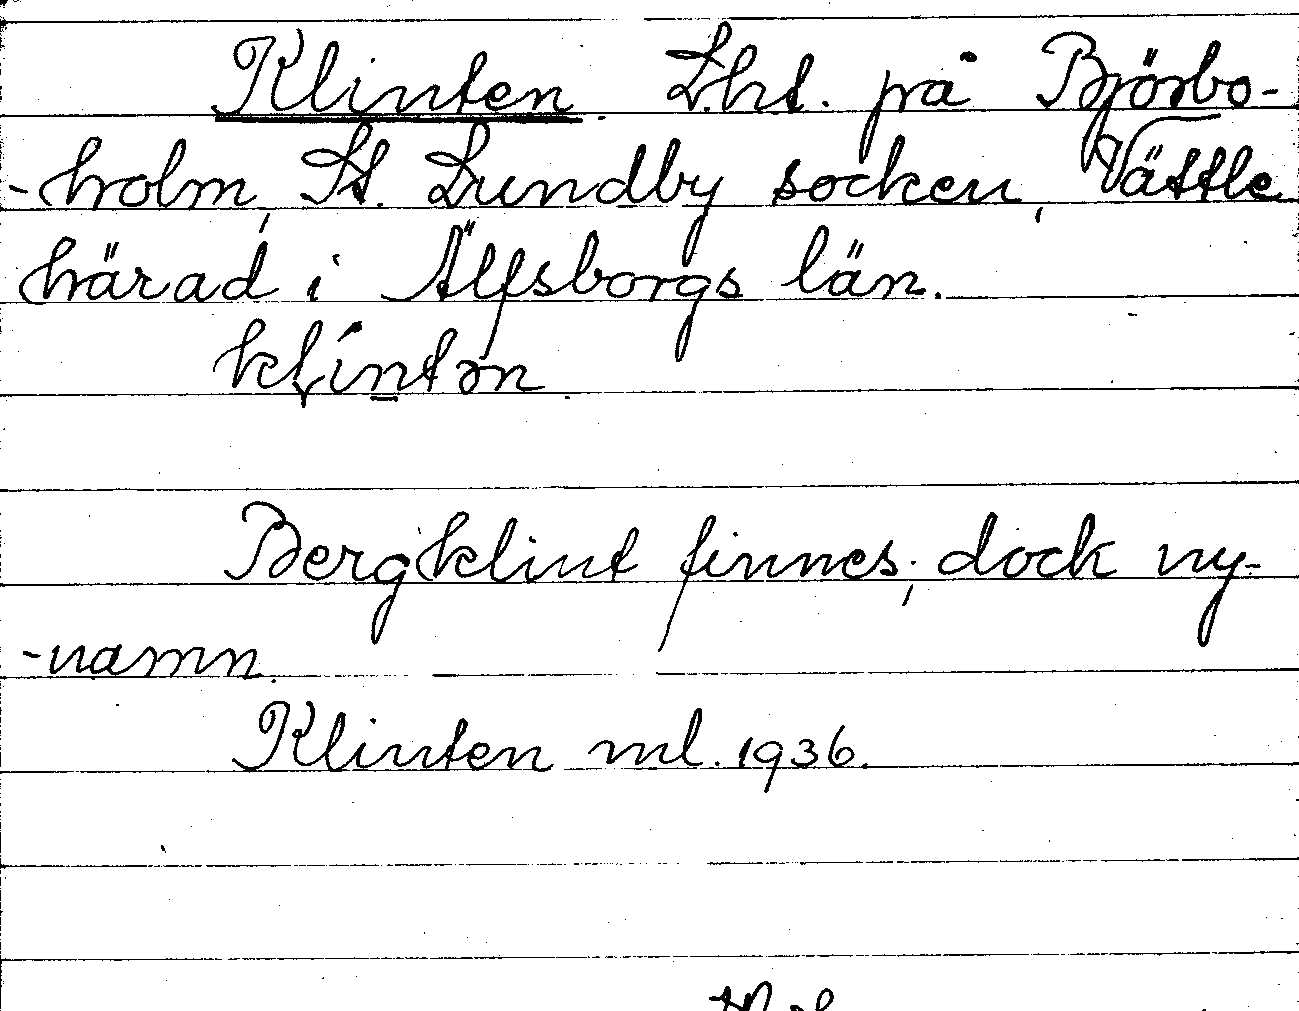 Klinten L.ht. på Björbo-
-holm, St. Lundby socken, Vättle
härad i Älfsborgs län.
klíntən
Bergklint finnes; dock ny-
-namn.
Klinten ml. 1936.